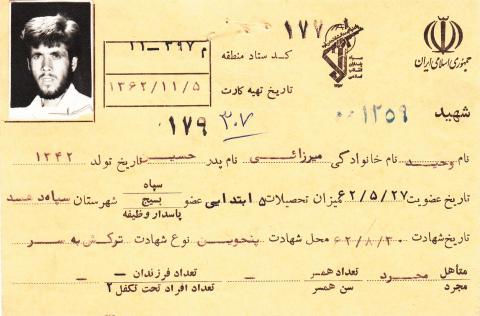 ۱۷۷
جمهوری اسلامی ایران
کد ستاد منطقه م ۳۹۷ – ۱۱
تاریخ تهیه کارت ۱۳۶۲/۱۱/۵
شهید ۱۲۵۹ ۳۰۷ ۱۷۹
نام وحید نام خانوادگی میرزائی نام پدر حسین تاریخ تولد ۱۳۴۲
تاریخ عضویت ۶۲/۵/۲۷ میزان تحصیلات ۵ ابتدایی عضو سپاه بسیج پاسدار وظیفه شهرستان
تاریخ شهادت ۶۲/۸/۳۰ محل شهادت پنجوین نوع شهادت ترکش به سر
متأهل مجرد مجرد تعداد همسر – تعداد فرزندان – –
سن همسر تعداد افراد تحت تکفل ۲